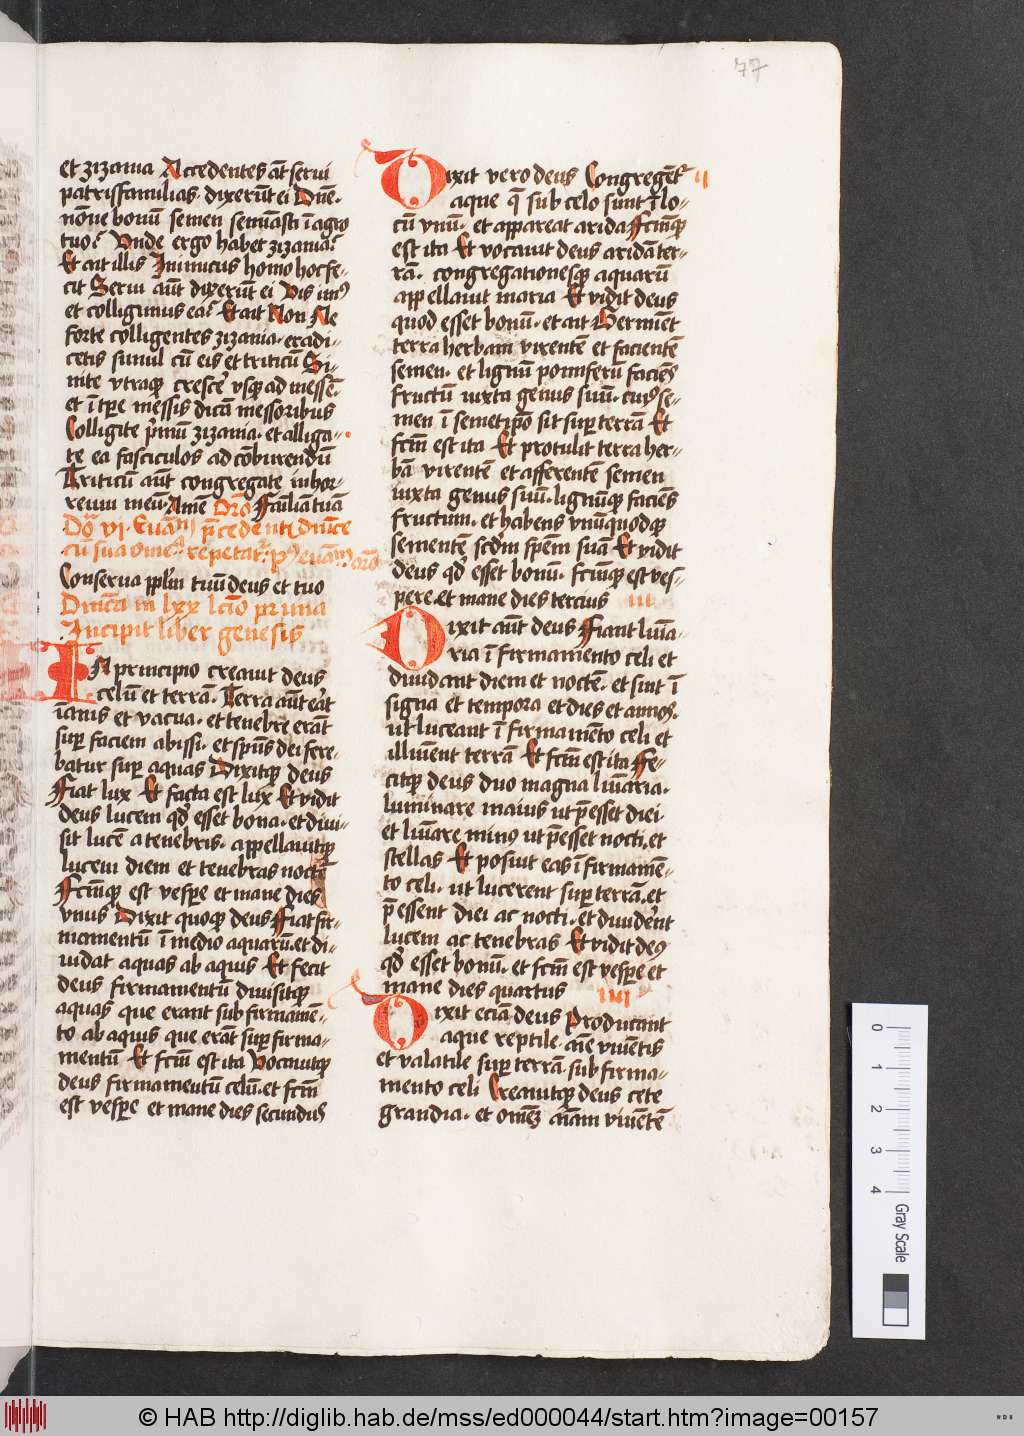 77
et zizania Accedentes āt serui
patrisfamilias· dixerūt ei Dn̄e·
nōne bonū semen semīasti ī agro
tuo? Vnde ergo habet zizania?
Et ait illis Inimicus homo hoc fe-
cit Serui aūt dixerūt ei Vis imꝰ
et colligimus ea? Et ait Non Ne
forte colligentes zizania· eradi-
cetis simul cū eis et triticū Si-
nite vtraqꝫ cresce᷑ vsqꝫ ad messē·
et ī tp̄re messis dicā messoribus
Colligite p̄mū zizania· et alliga-
te ea fasciculos ad cōburendū
Triticū aūt congregate in hor-
reum meū· Amē Orō Fāiliā tuā
Conserua ppl̄m tuū deus et tuo
Dn̄ica in lxx lcīo prima
Incipit liber genesis
IN principio creauit deus
celū et terrā· Terra aūt erat
īanis et vacua· et tenebre erāt
suꝑ faciem abissi· et spūs dei fere-
batur suꝑ aquas Dixitqꝫ deus
Fiat lux Et facta est lux Et vidit
deus lucem qd̄ esset bona· et diui-
sit lucē a tenebris· appellauitqꝫ
lucem diem et tenebras noctē
Fcm̄qꝫ est vespe᷑ et mane dies
vnus Dixit quoqꝫ deus Fiat fir-
mamentū ī medio aquarū· et di-
uidat aquas ab aquis Et fecit
deus firmamentū diuisitqꝫ
aquas que erant sub firmamē-
to ab aquis que erāt suꝑ firma-
mentū Et fcm̄ est ita Vocauitqꝫ
deus firmamentū celū· et fcm̄
est vespe᷑ et mane dies secundus
Dixit vero deus Congregēt᷑ ii
aque q̄ sub celo sunt ī lo-
cū vnū· et appareat arida Fcm̄qꝫ
est ita Et vocauit deus aridā ter-
rā· congregationesqꝫ aquarū
appellauit maria Et vidit deus
quod esset bonū· et ait Germīet
terra herbam virentē et facientē
semen· et lignū pomiferū faciēs
fructū iuxta genus suū· cuiꝰ se-
men ī semetip̄o sit suꝑ terrā Et
fcm̄ est ita Et protulit terra her-
bā virentē et afferentē semen
iuxta genus suū· lignūqꝫ faciēs
fructum· et habens vnūquodqꝫ
sementē scd̄m sp̄em suā Et vidit
deus qd̄ esset bonū· fcm̄qꝫ est ves-
pere· et mane dies tercius iii
Dixit aūt deus Fiant lumīa-
ria ī firmamento celi et
diuidant diem et noctē· et sint ī
signa et tempora et dies et annos·
ut luceant ī firmamēto celi et
illumīent terrā Et fcm̄ est ita Fe-
citqꝫ deus duo magna lumīaria·
luminare maius ut p̄esset diei
et lumīare minꝰ ut p̄esset nocti· et
stellas Et posuit eas ī firmamē-
to celi· ut lucerent suꝑ terrā· et
p̄essent diei ac nocti· et diuiderent
lucem ac tenebras Et vidit deꝰ
qd̄ esset bonū· et fcm̄ est vespe᷑ et
mane dies quartus iiii
Dixit eciā deus Producant
aque reptile· aīe viuētis
et valatile suꝑ terrā· sub firma-
mento celi Creauitqꝫ deus cete
grandia· et om̄eꝫ aīam viuētē
0 1 2 3 4
Gray Scale
© HAB http://diglib.hab.de/mss/ed000044/start.htm?image=00157